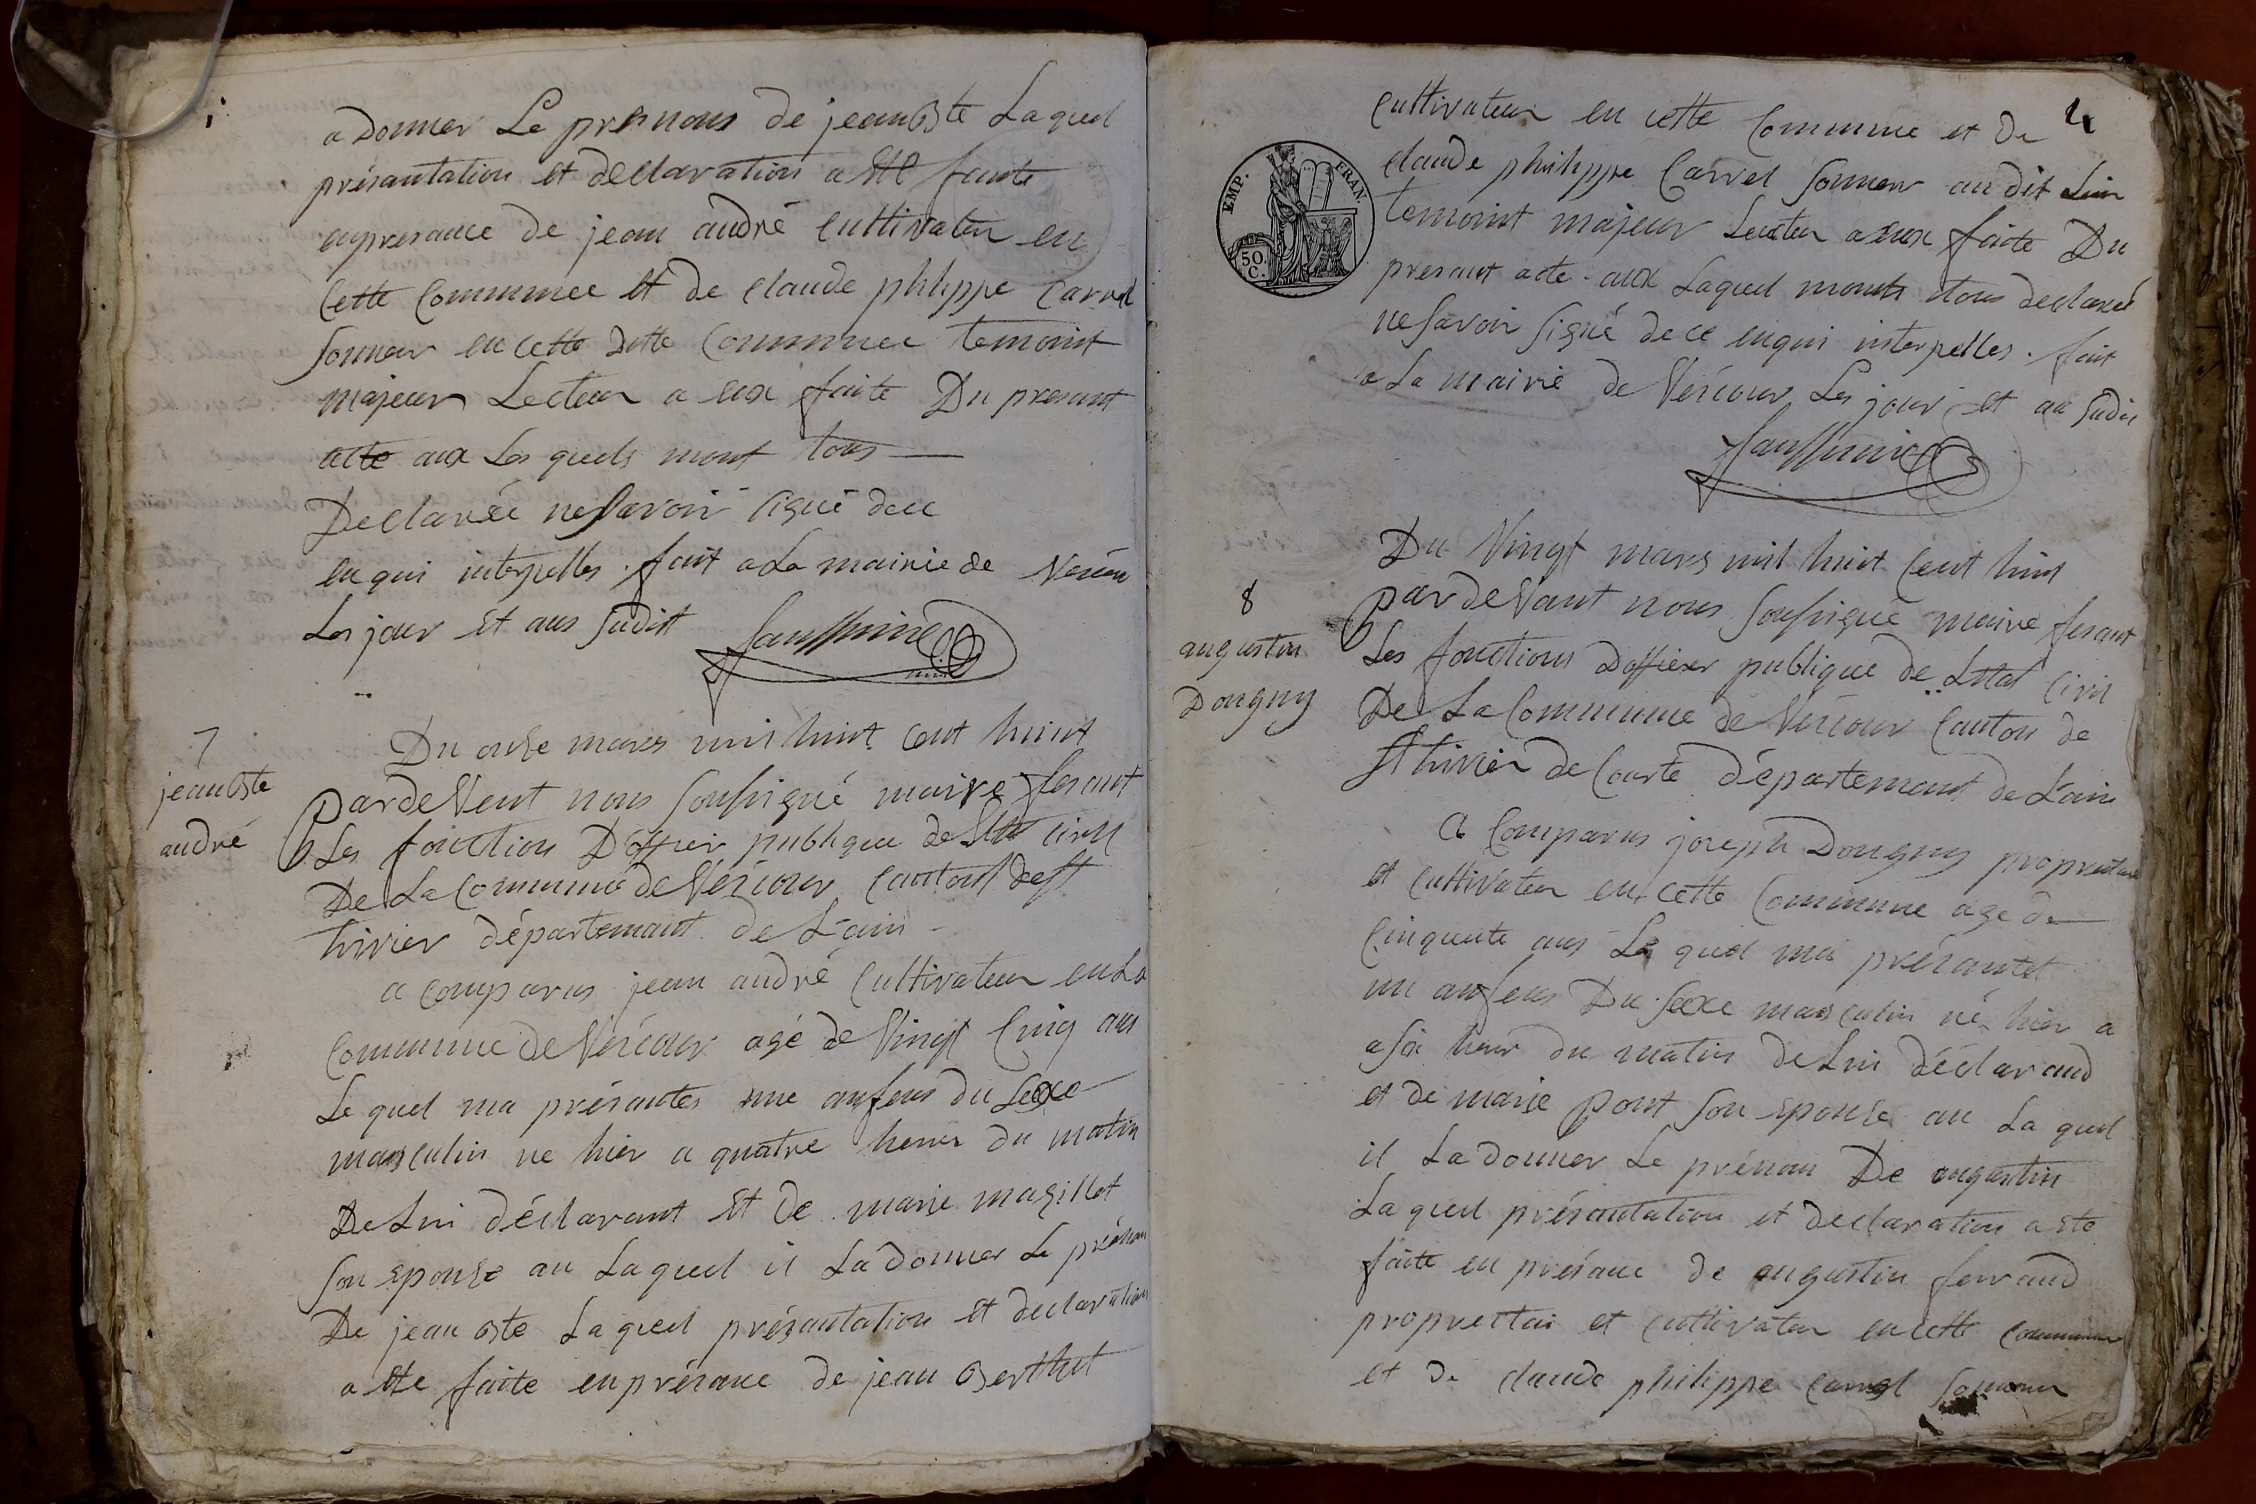 a Donner Le prenous de jean Bste Laquel
présantation et declaration a été faite
enpresance de jean andré Cultivateur en
Cette Commune et de Claude philippe Carrel
Sonneur en cette ditte Commune temoint
majeur Lecteur a eux faite Du presant
acte aux Les quels mont tous
Declarée ne savoir signé dece
enqui interpelles. fait a La mairie de
Les jour et ans sudit
7
jean Bste
andré
Du onse mars mil huit cent huit
Par deVent nous soussigné maire fesant
Les fonction Doffier publique de civil
De La Commune de Vericour Canton de St
trivier département de L'ain
a comparus jean andré Cultivateur en La
Commune de Vericour agé de Vingt Cinq ans
Le quel ma présantes une anfens du Sexe
masculin ne hier a quatre heures du matin
De Lui déclarant et de marie magillet
son eponse au Laquel il La donner Le prénom
De jean Bste Laquel présantation et declaration
a ete faite enprésance de jean Berthet
2
Cultivateur en cette Commune et De
Claude philippe Carrel sonneur au dit Lieu
temoint majeur Lecteur a eux faite Du
presant acte aux Laquel monts tous declaré
ne savoir signé de ce enqui interpelles. fait
a La mairie de Vericour Les jour et an sudit
EMP. FRAN.
50. C.
8
augustin
Dongny
Du Vingt mars mil huit Cent huit
Par deVant nous soussigné maire fesant
Les fonctions Doffier publique de Létat Civil
De La Commune de Vericour Canton de
St trivier de Courte département de L'ain
a Comparus joseph Dongny propriettaire
et Cultivateur en cette Commune age de
Cinquente ans Le quel ma présantet
un anfens Du Sexe masculin né hier a
a six heur du matin de Lui déclarand
et de marie Pont son eponse au La quel
il La donner Le prénom De augustin
Laquel présantation et declaration a ete
faite en présance de augustin ferrand
propriettai et cultivateur en cette commune
et De claude philippe carrel sonneur